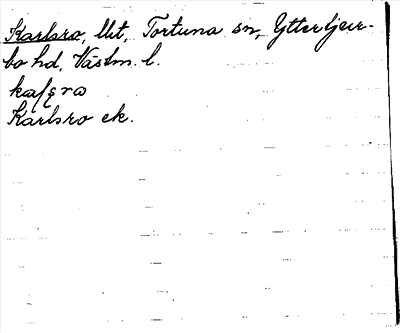 Karlsro, llt, Tortuna sn, Yttertjur-
bo hd, Västm. l.
Karlsro ek.